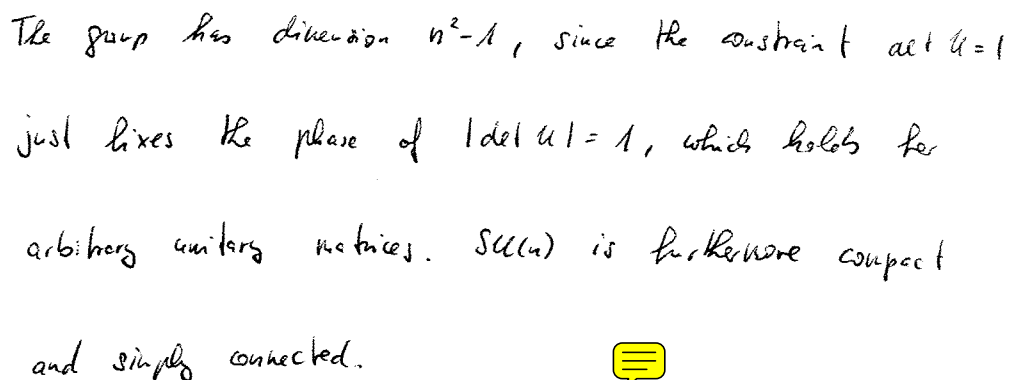 The group has dimension n²-1, since the constraint det U = 1
just fixes the phase of |det U| = 1, which holds for
arbitrary unitary matrices. SU(n) is furthermore compact
and simply connected.